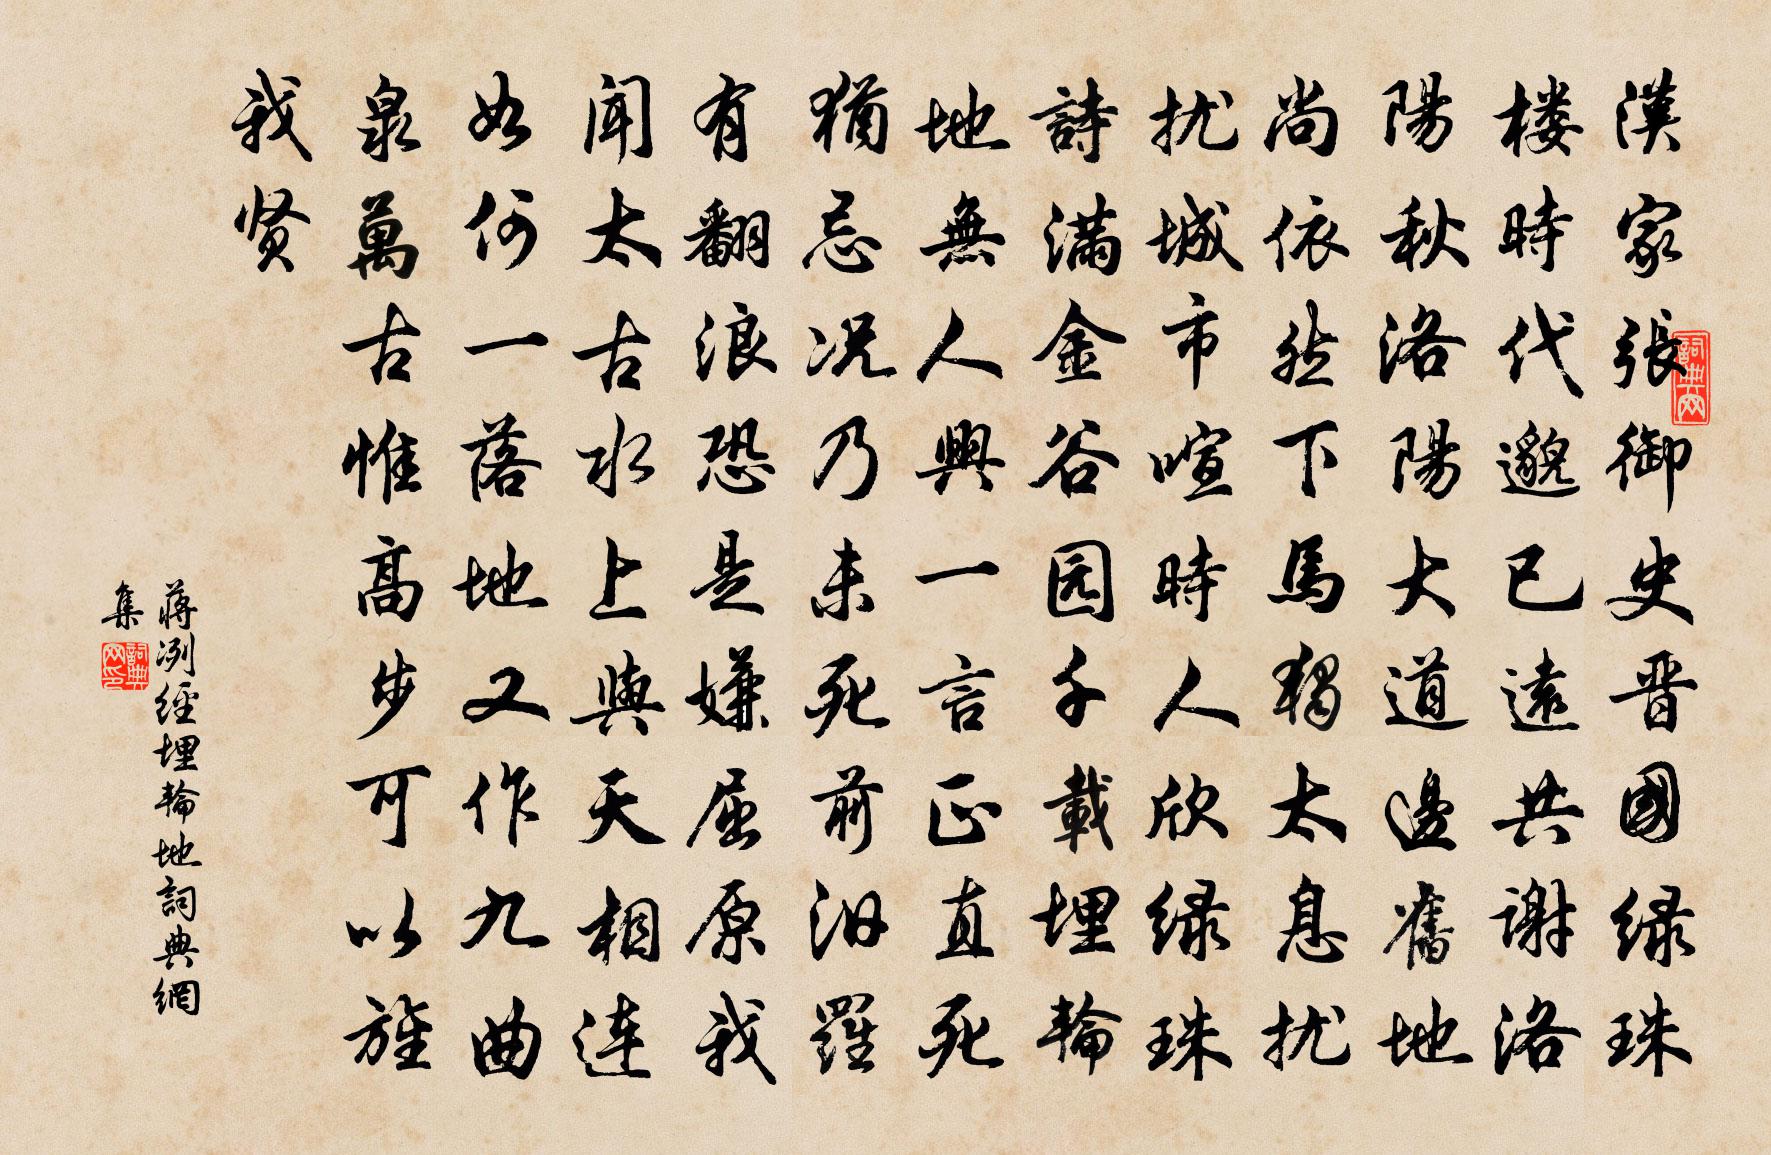 漢家張御史晋國緑珠
楼時代邈已遠共謝洛
陽秋洛陽大道邊舊地
尚依然下馬獨太息扰
扰城市喧時人欣緑珠
詩满金谷园千載埋輪
地無人興一言正直死
猶忌况乃未死前汨羅
有翻浪恐是嫌屈原我
聞太古水上與天相连
如何一落地又作九曲
泉萬古惟高步可以旌
我贤
蒋冽經埋輪地詞典網
集
詞典网
詞典网印